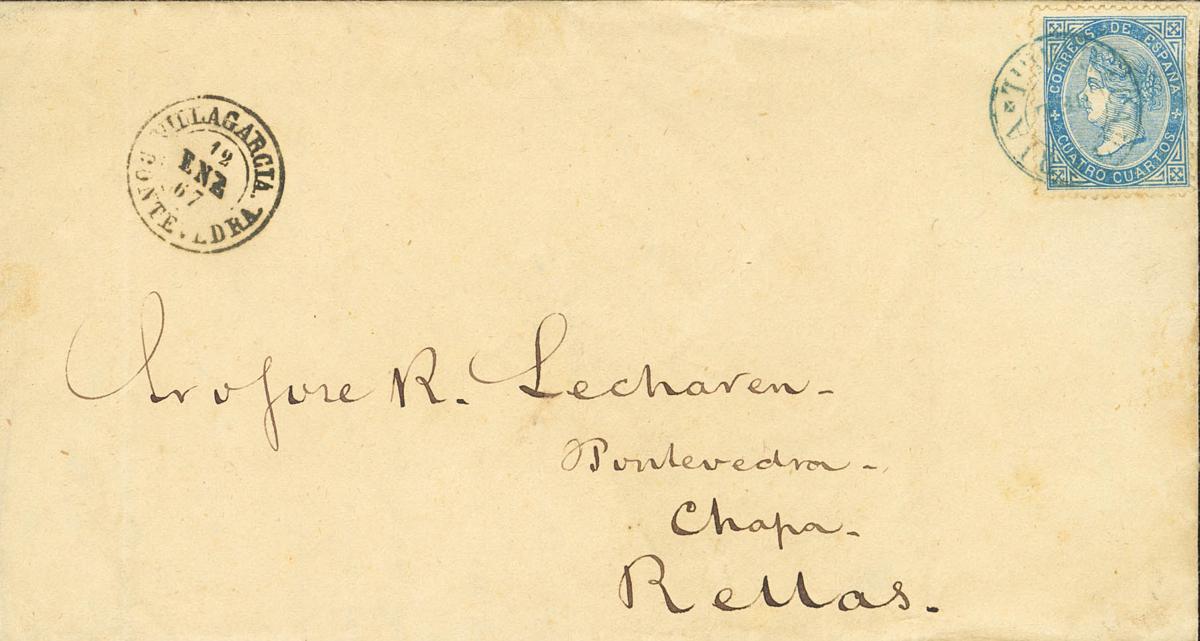 VILLAGARCIA.
12
ENE
67
PONTEVEDRA.
CORREOS DE ESPAÑA
CUATRO CUARTOS
Sr D Jose R. Lecharen-
Pontevedra-
Chapa-
Rellas.